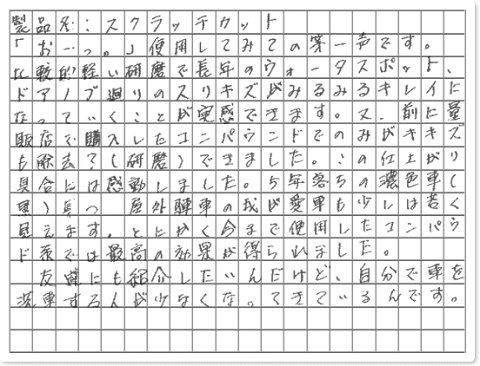 製品名：スクラッチカット
「おーっ。」使用してみての第一声です。
比較的軽い研磨で長年のウォータスポット、
ドアノブ廻りのスリキズがみるみるキレイに
なっていくことが実感できます。又、前に量
販店で購入したコンパウンドでのみがキキズ
も除去？（研磨）できました。この仕上がり
具合には感動しました。5年落ちの濃色車（
黒）且つ 屋外駐車の我が愛車も少しは若く
見えます。とにかく今まで使用したコンパウ
ド系では最高の効果が得られました。
友達にも紹介したいんだけど、自分で車を
洗車する人が少なくなってきているんです。